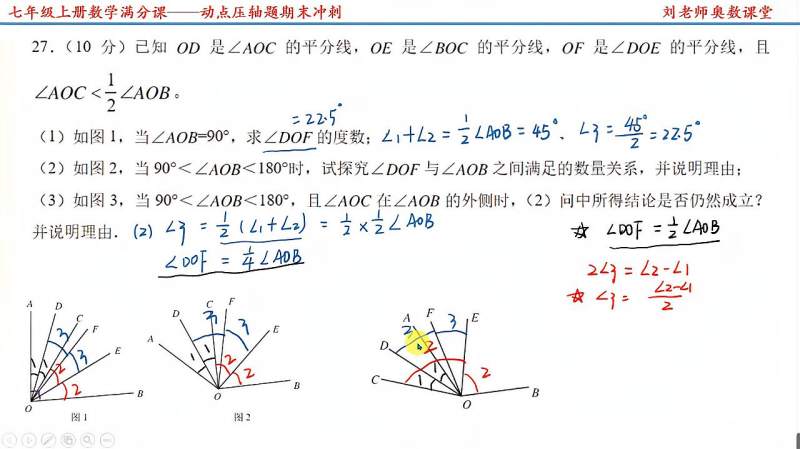 七年级上册数学满分课——动点压轴题期末冲刺
刘老师奥数课堂
27.（10 分）已知 OD 是∠AOC 的平分线，OE 是∠BOC 的平分线，OF 是∠DOE 的平分线，且
∠AOC＜1/2∠AOB。
=22.5°
（1）如图 1，当∠AOB=90°，求∠DOF 的度数；
∠1+∠2=1/2∠AOB=45°、∠3=45°/2=22.5°
（2）如图 2，当 90°＜∠AOB＜180°时，试探究∠DOF 与∠AOB 之间满足的数量关系，并说明理由；
（3）如图 3，当 90°＜∠AOB＜180°，且∠AOC 在∠AOB 的外侧时，（2）问中所得结论是否仍然成立？
并说明理由．
(2) ∠3=1/2(∠1+∠2)=1/2×1/2∠AOB
∠DOF=1/4∠AOB
☆ ∠DOF=1/2∠AOB
2∠3=∠2-∠1
☆ ∠3=∠2-∠1/2
A D C F E B O 1 1 2 2 3 3
图 1
A D C F E B O 1 1 2 2 3 3
图 2
A F E D C B O 1 1 2 2 3 3